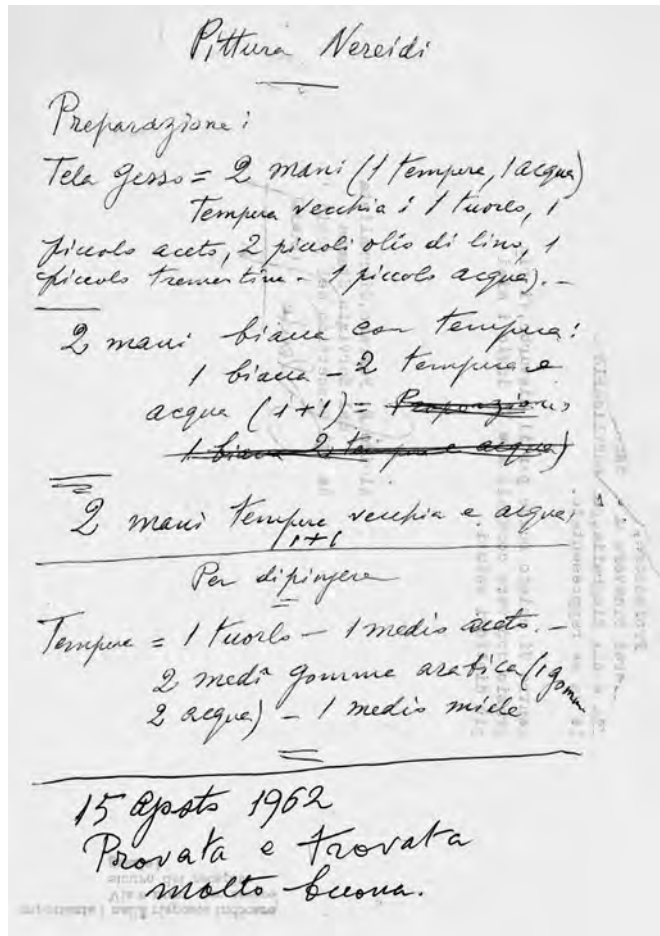 Pittura Nereidi
Preparazione:
Tela gesso = 2 mani (1 tempera, 1 acqua)
Tempera vecchia: 1 tuorlo, 1
piccolo aceto, 2 piccoli olio di lino, 1
piccolo trementina - 1 piccolo acqua). -
2 mani biacca con tempera:
1 biacca - 2 tempera e
acqua (1+1) = Proporzione
1 biacca 2 tempera e acqua)
2 mani tempera vecchia e acqua
1+1
Per dipingere
Tempera = 1 tuorlo - 1 medio aceto. -
2 medi gomma arabica (1 gomma
2 acqua) - 1 medio miele
15 Agosto 1962
Provata e trovata
molto buona.